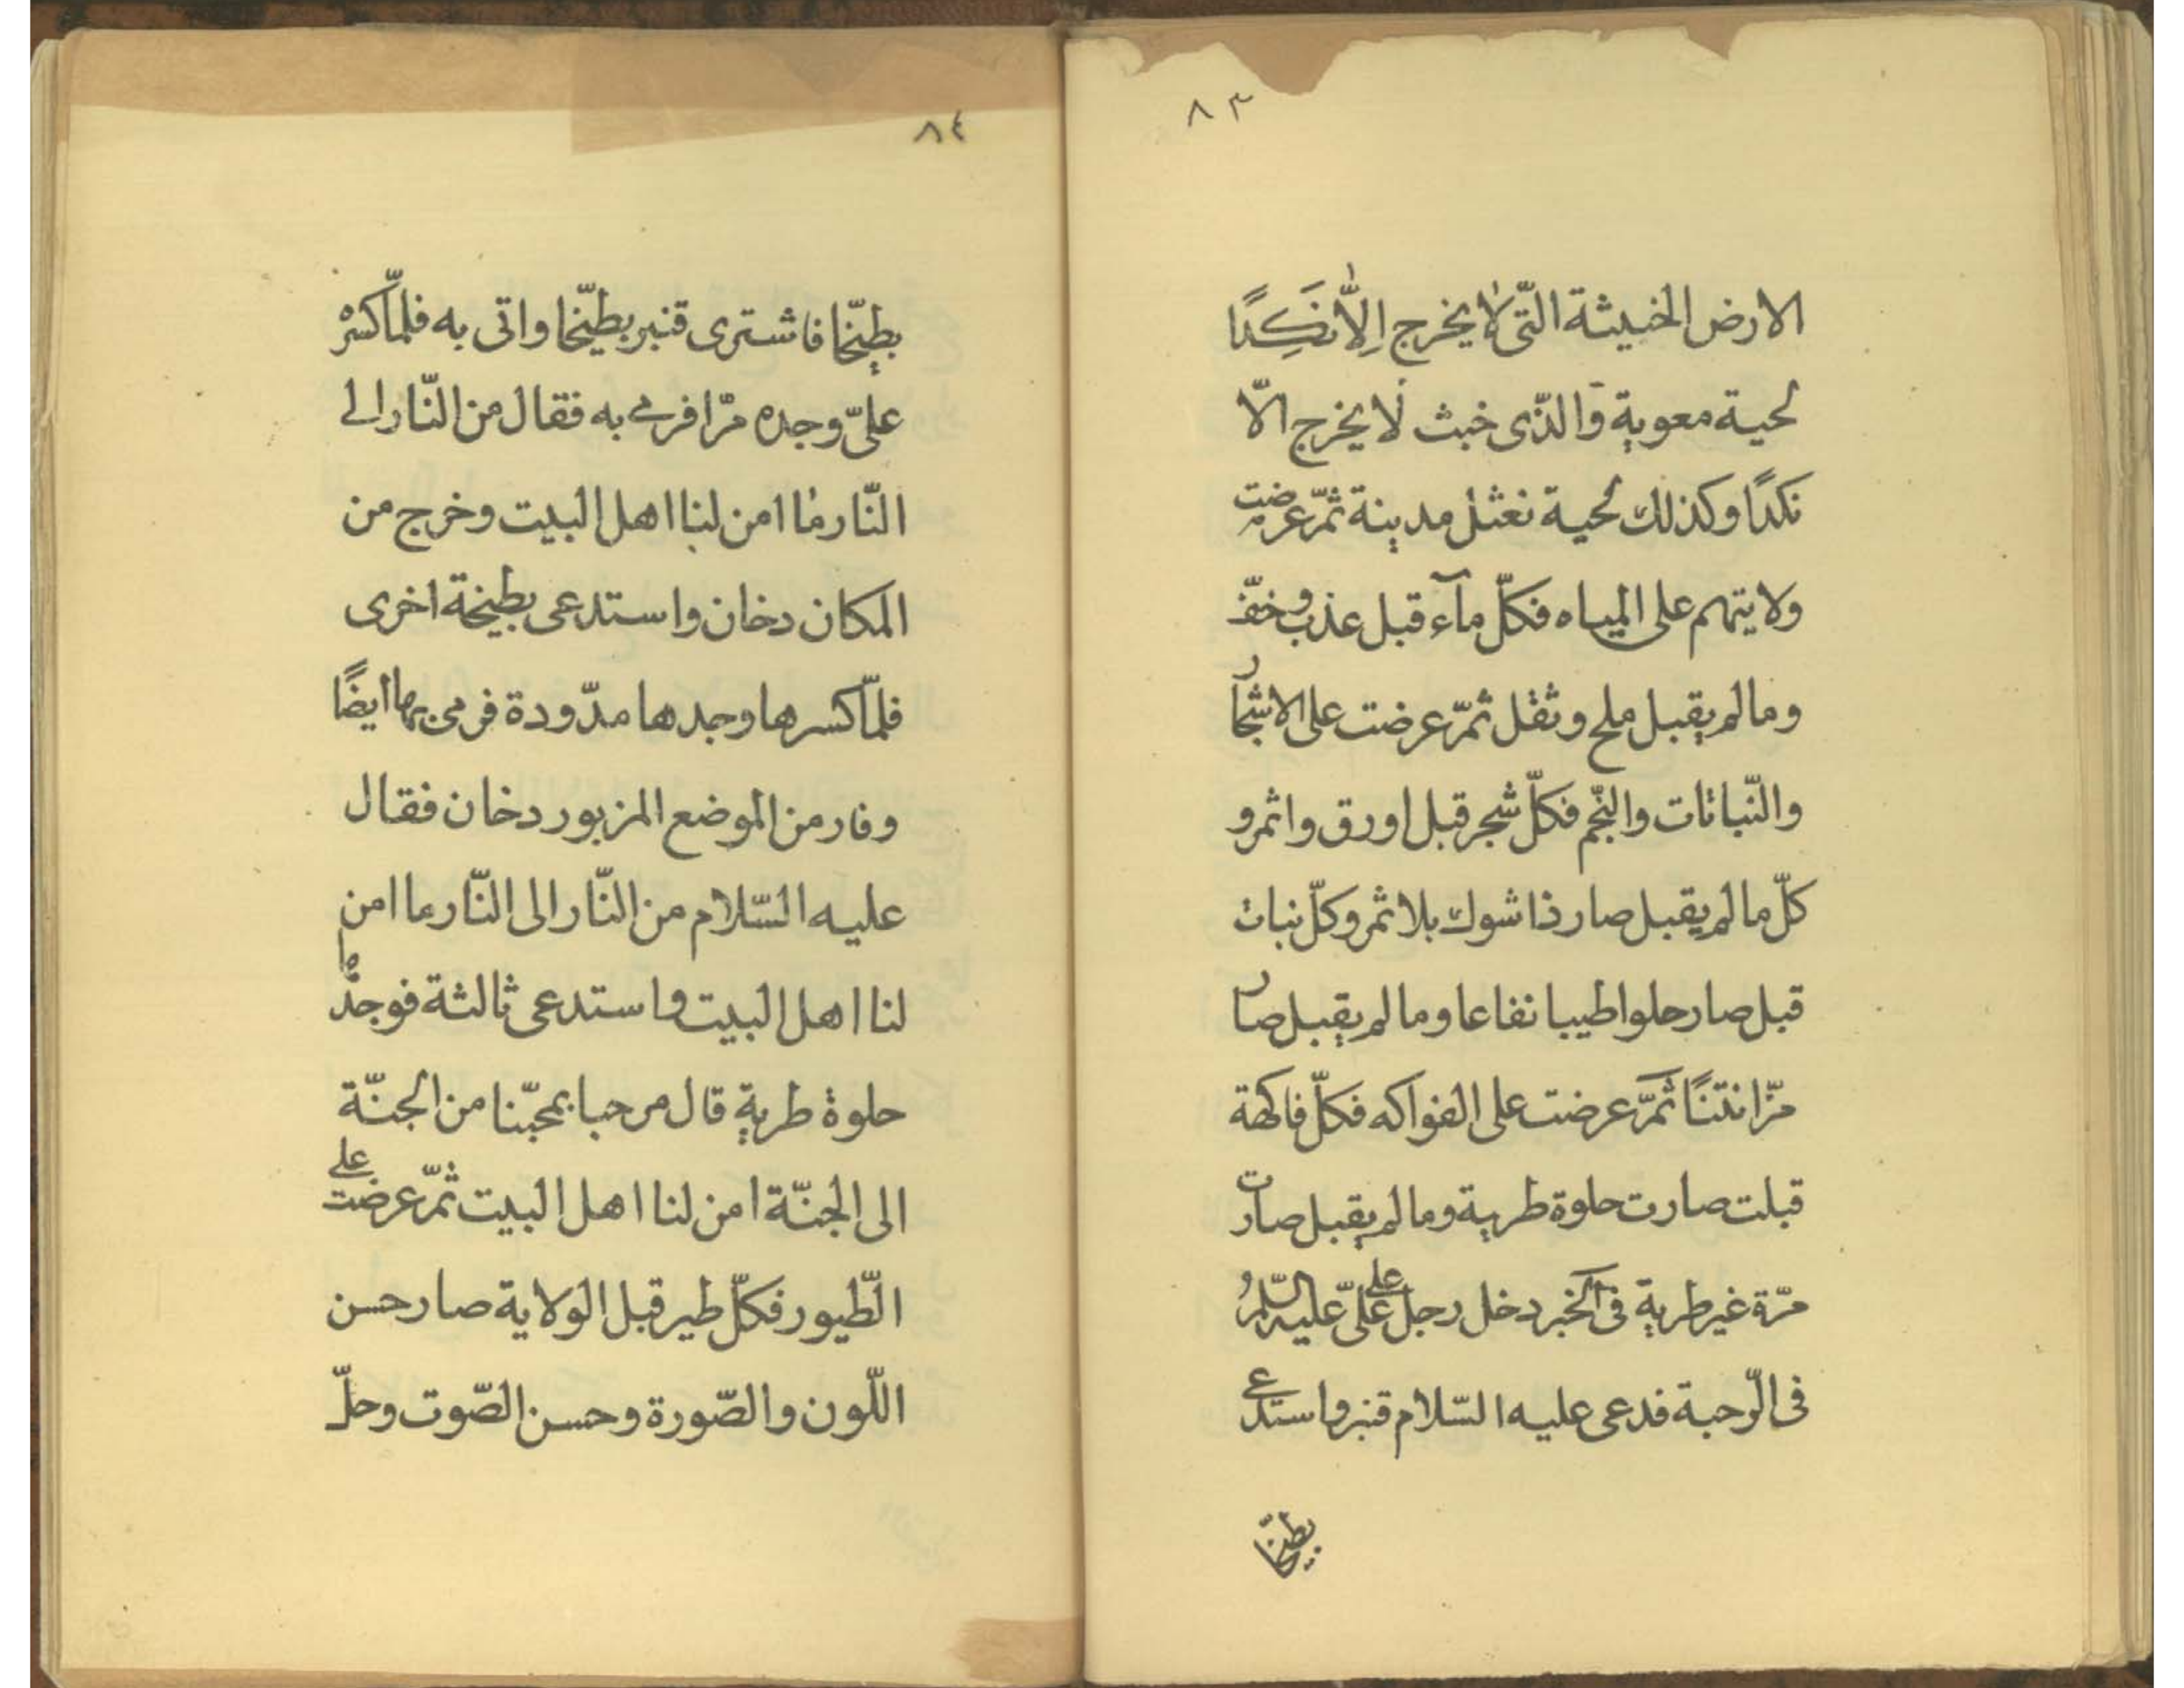 ٨٣
الارض الخبيثة الّتى لا يخرج اِلّا نَكِدًا
لحية معوية وَالذّى خبث لَا يخرج الّا
نكدًا وكذلك لحية نعثل مدينة ثمّ عرضت
ولايتهم على المياه فكلّ مآء قبل عذب وخفّ
وما لم يقبل ملح وثقل ثمّ عرضت على الاشجار
والنّباتات والنّجم فكلّ شجر قبل اورق واثمر و
كلّ ما لم يقبل صار ذا شوك بلا ثمر وكلّ نبات
قبل صار حلوا طيبا نفاعا وما لم يقبل صار
مرّا نتنًا ثمّ عرضت على الفواكه فكلّ فاكهة
قبلت صارت حلوة طرية وما لم يقبل صارت
مرّة غير طرية فى الخبر دخل رجل على علىّ عليه السّلم و
فى الرّحبة فدعى عليه السّلام قنبر واستدعى
بطيّخا
٨٤
بطيّخا فاشترى قنبر بطيّخا واتى به فلمّا كسره
علىّ وجده مرّا فرمى به فقال من النّار الى
النّار ما امن لنا اهل البيت وخرج من
المكان دخان واستدعى بطيخة اخرى
فلمّا كسرها وجدها مدّودة فرمى بها ايضًا
وفار من الموضع المزبور دخان فقال
عليه السّلام من النّار الى النّار ما امن
لنا اهل البيت واستدعى ثالثة فوجدها
حلوة طرية قال مرحبا بمحبّنا من الجنّة
الى الجنّة امن لنا اهل البيت ثمّ عرضت على
الطّيور فكلّ طير قبل الولاية صار حسن
اللّون والصّورة وحسن الصّوت وحلّ